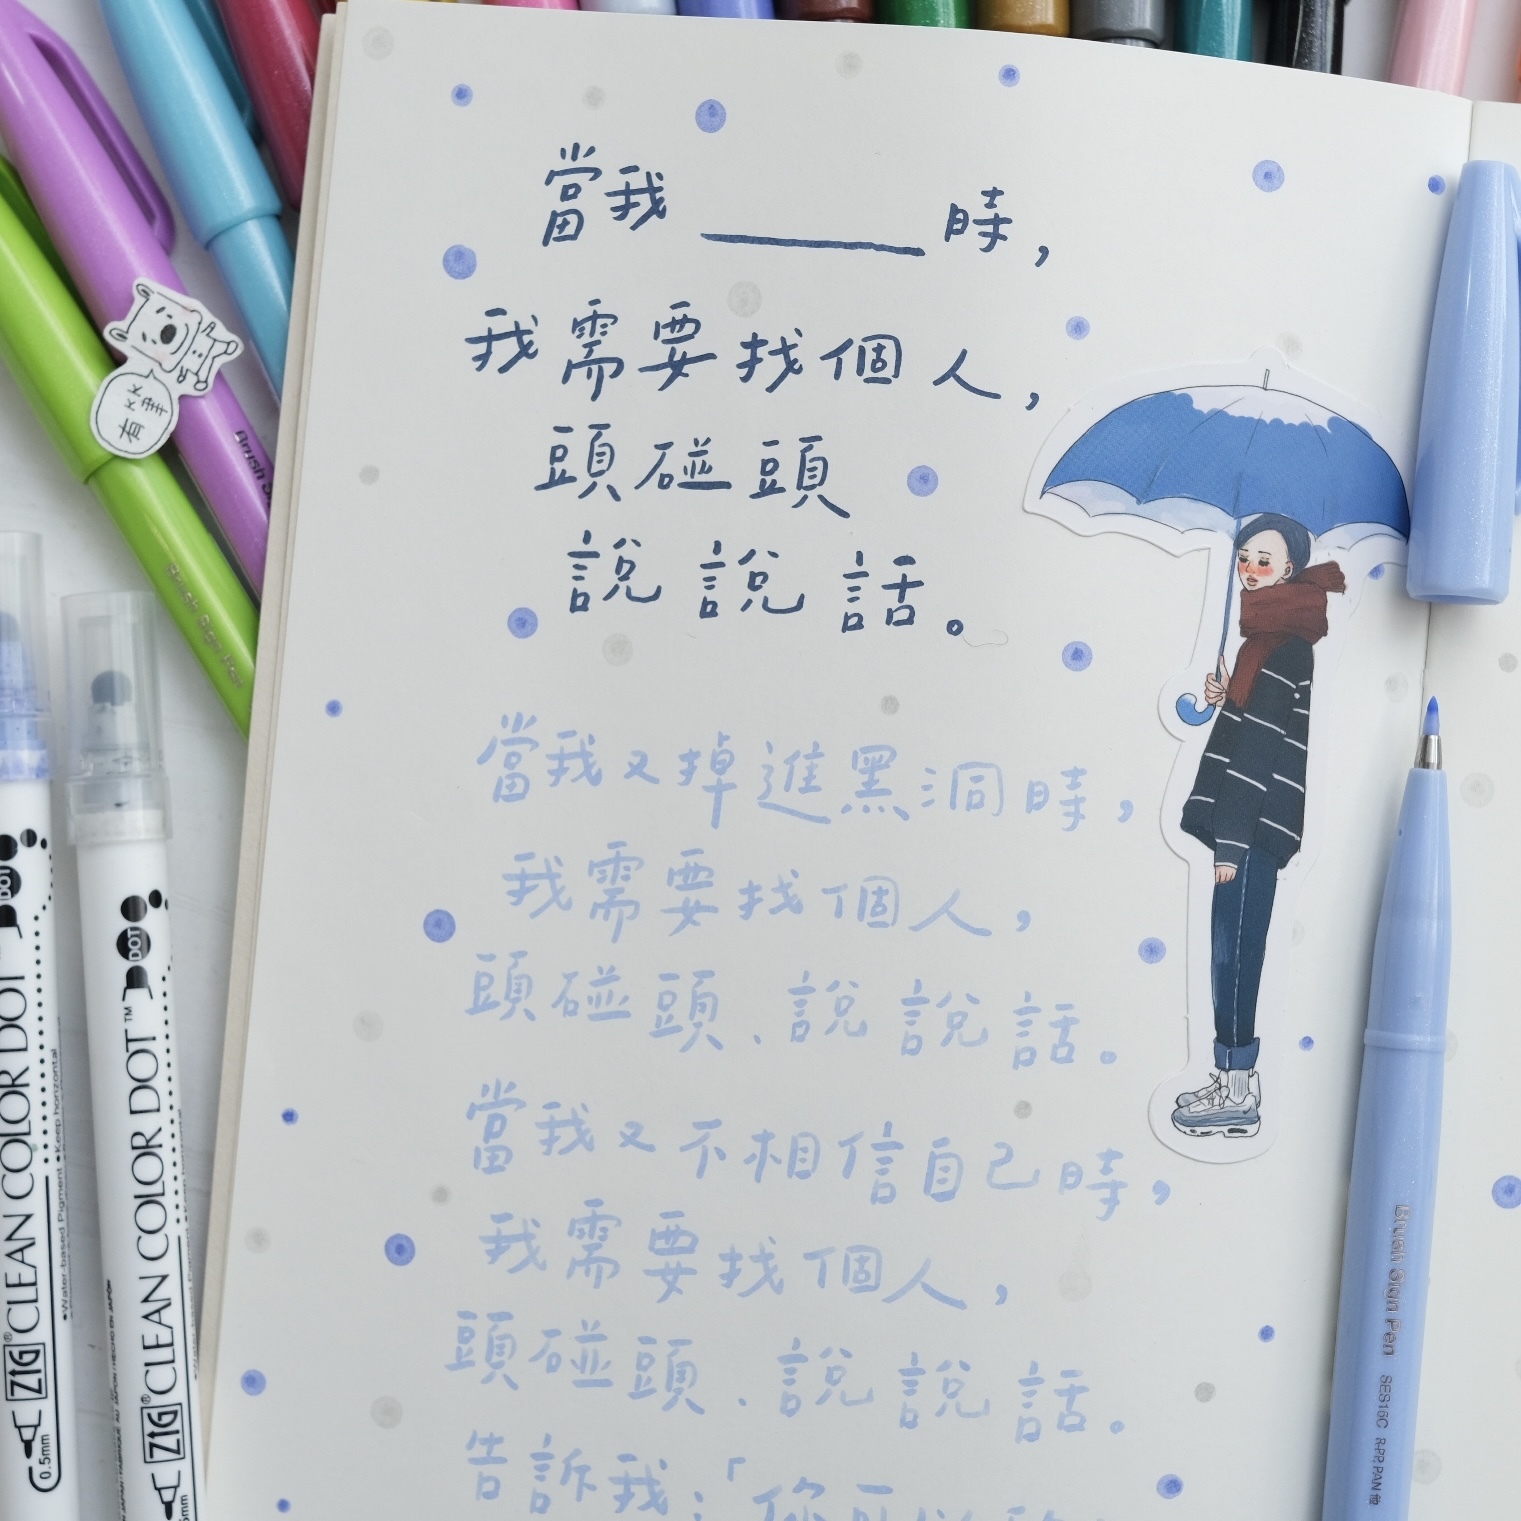 當我＿＿＿時，
我需要找個人，
頭碰頭
說說話。
當我又掉進黑洞時，
我需要找個人，
頭碰頭、說說話。
當我又不相信自己時，
我需要找個人，
頭碰頭、說說話。
告訴我：「你可以
Brush Sign Pen SES15C
Brush S
Brush Sign Pen
ZIG® CLEAN COLOR DOT™
0.5mm
•Water-based Pigment •Keep horizontal
DOT
ZIG® CLEAN COLOR DOT™
DOT